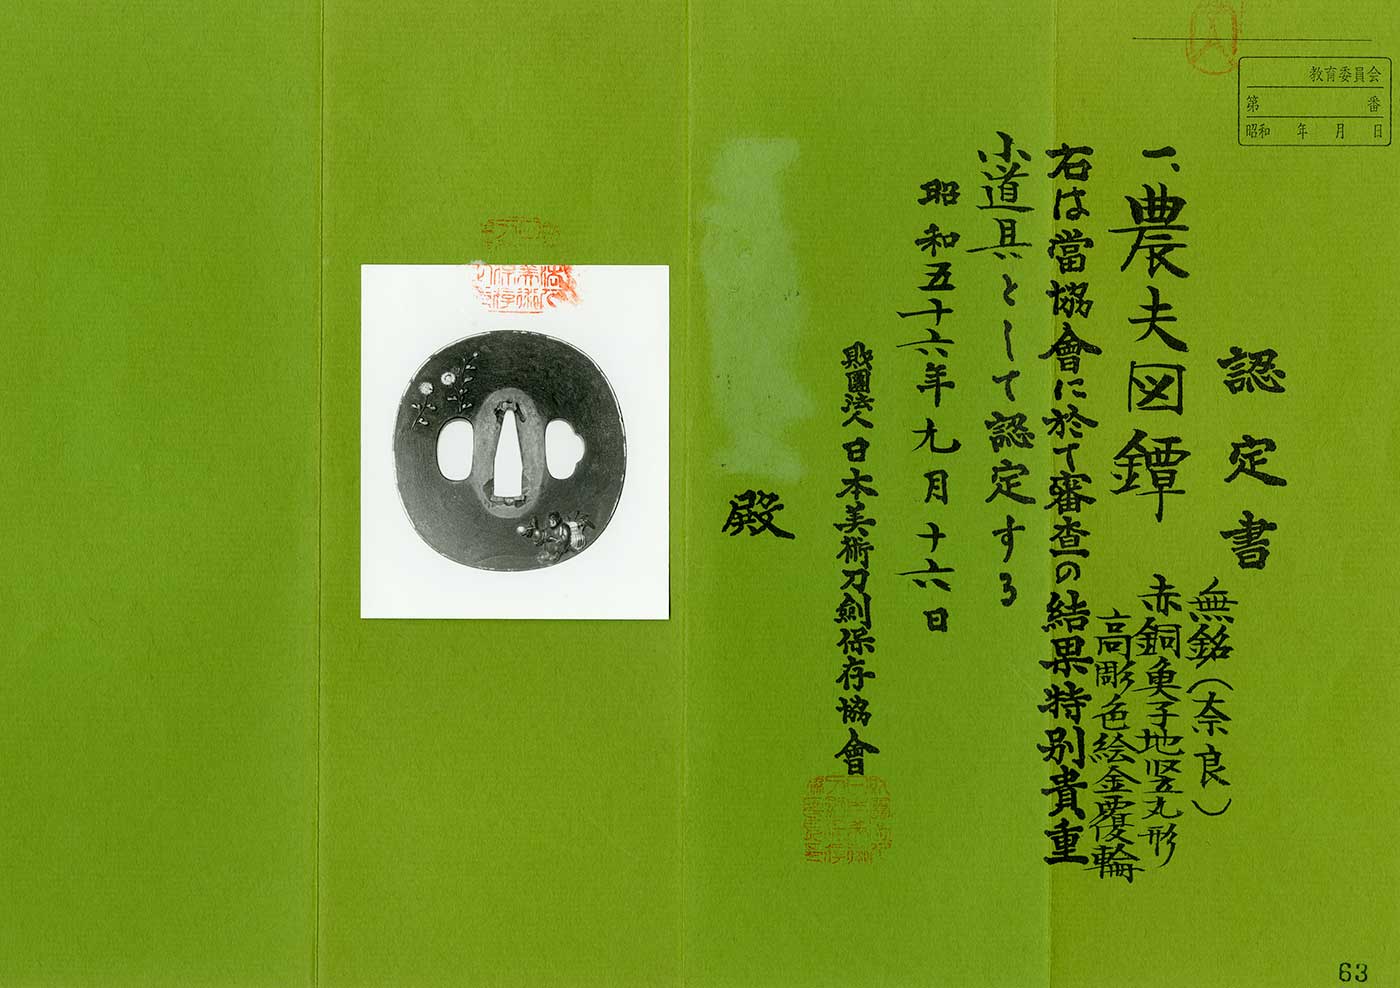 教育委員会
第 番
昭和 年 月 日
認定書
一、農夫図鐔
無銘(奈良)
赤銅魚子地竪丸形
高彫色絵金覆輪
右は當協會に於て審査の結果特別貴重
小道具として認定する
昭和五十六年九月十六日
財團法人日本美術刀劍保存協會
殿
63